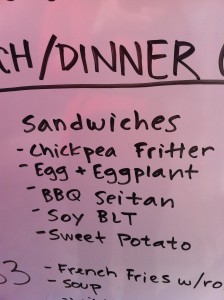 CH/DINNER
Sandwiches
- Chickpea Fritter
- Egg + Eggplant
- BBQ Seitan
- Soy BLT
- Sweet Potato
- French Fries w/ro
- Soup